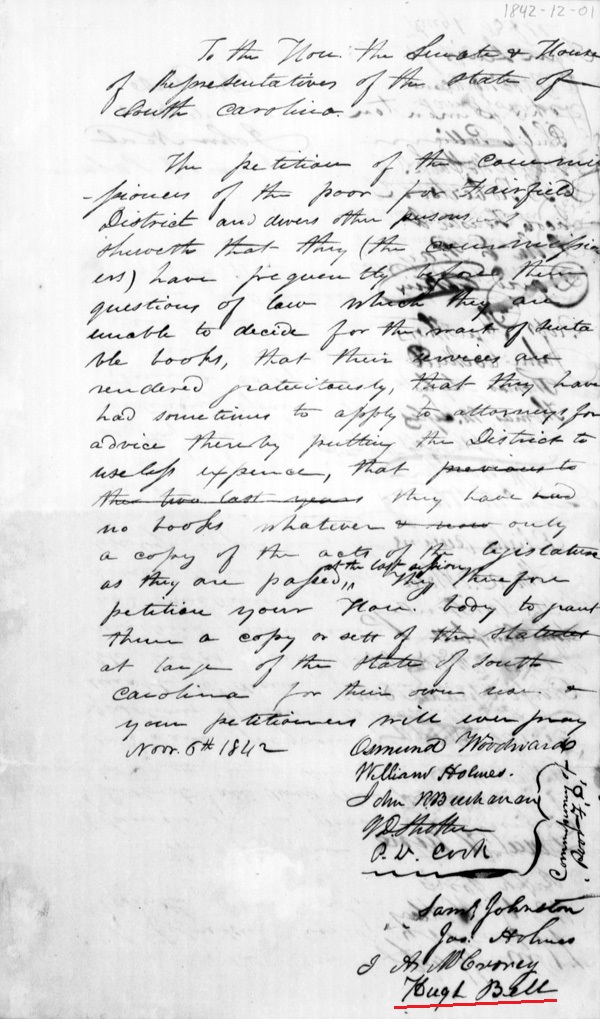 1842-12-01
To the Hon. the Senate & House
of Representatives of the State of
South Carolina.
The petition of the commis
-sioners of the poor for Fairfield
District and divers other persons
sheweth that they (the commission
ers) have frequently before them
questions of law which they are
unable to decide for the want of suita
ble books, that their services are
rendered gratuitously, that they have
had sometimes to apply to attorneys for
advice thereby putting the District to
useless expence, that previous to
the two last years they have had
no books whatever & now only
a copy of the acts of the legislature
as they are passed, at the last session, They therefore
petition your Hon. body to grant
them a copy or sett of the statutes
at large of the State of South
Carolina for their own use. &
your petitioners will ever pray
Novr. 6th 1842
Osmund Woodward
William Holmes.
John R Buchanan
P. V. Cook
Commissioners of Poor F. D.
Saml Johnston
Jas. Holmes
Hugh Bell